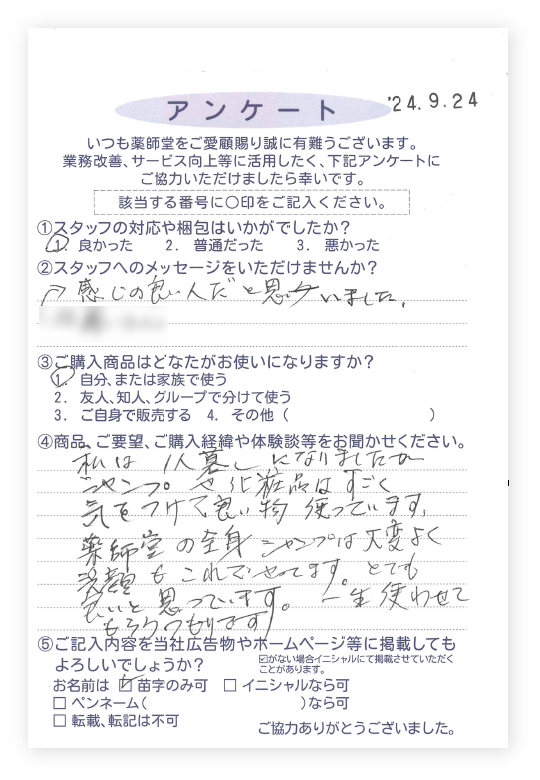 アンケート
'24.9.24
いつも薬師堂をご愛顧賜り誠に有難うございます。
業務改善、サービス向上等に活用したく、下記アンケートに
ご協力いただけましたら幸いです。
該当する番号に〇印をご記入ください。
①スタッフの対応や梱包はいかがでしたか？
1. 良かった 2. 普通だった 3. 悪かった
②スタッフへのメッセージをいただけませんか？
感じの良い人だと思いました。
③ご購入商品はどなたがお使いになりますか？
1. 自分、または家族で使う
2. 友人、知人、グループで分けて使う
3. ご自身で販売する 4. その他（ ）
④商品、ご要望、ご購入経緯や体験談等をお聞かせください。
私は 1人暮しになりましたが
シャンプーや化粧品はすごく
気をつけて良い物 使っています。
薬師堂の全身シャンプーは大変よく
洗顔もこれでやってます。とても
良いと思っています。一生使わせて
もらうつもりです
⑤ご記入内容を当社広告物やホームページ等に掲載しても
よろしいでしょうか？
☑がない場合イニシャルにて掲載させていただく
ことがあります。
お名前は ☑ 苗字のみ可 □ イニシャルなら可
□ ペンネーム( )なら可
□ 転載、転記は不可
ご協力ありがとうございました。